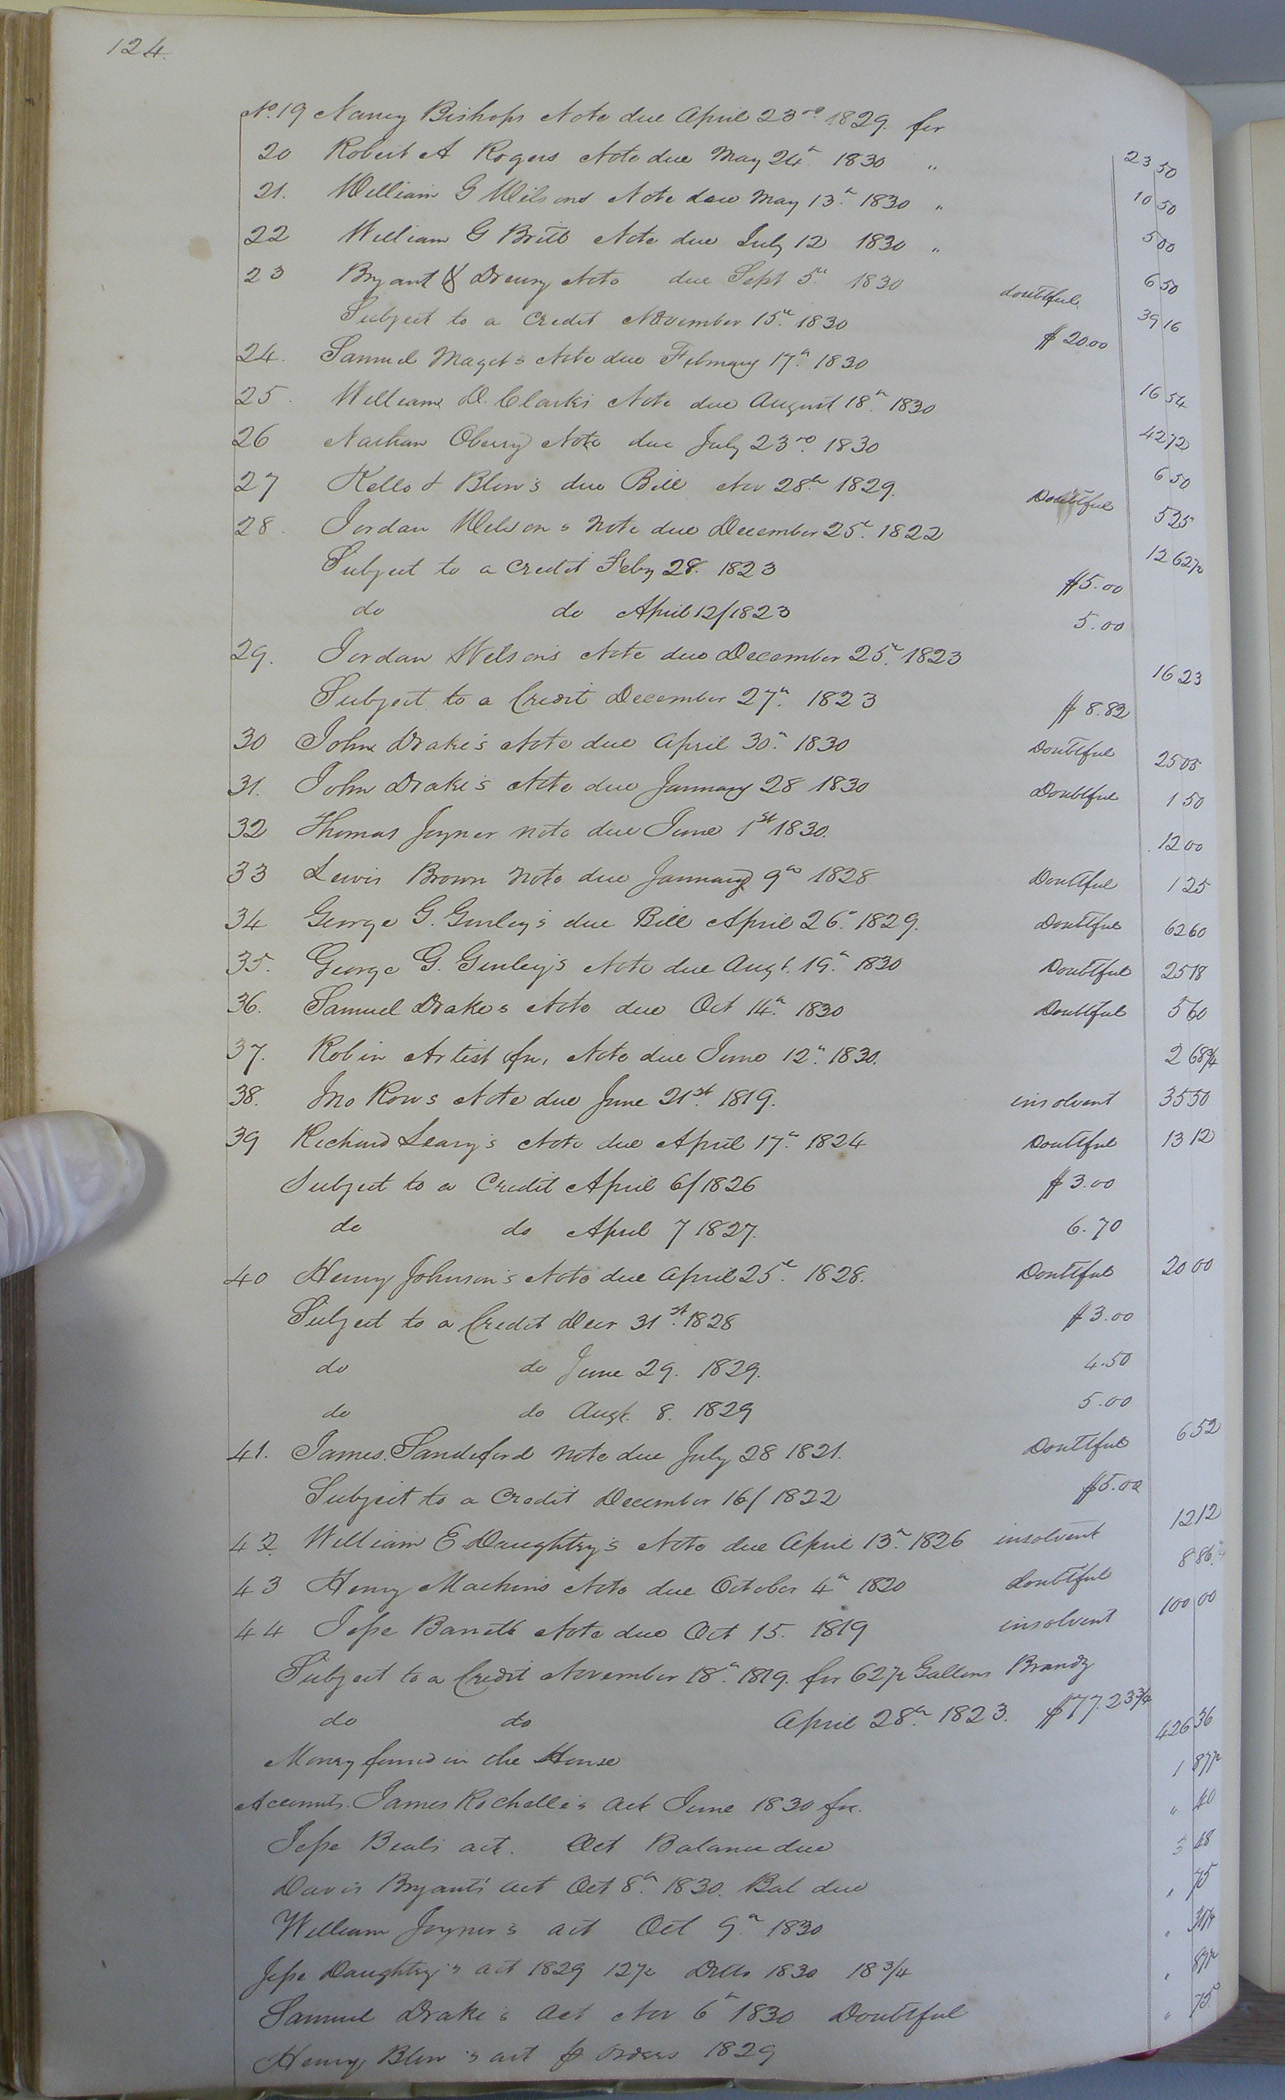 124.
No. 19 Nancy Bishops Note due April 23rd 1829. for 23 50
20 Robert A Rogers Note due May 24th 1830 " 10 50
21. William G Wilsons Note due May 13th 1830 " 5 00
22 William G Britt Note due July 12 1830 " 6 50
23 Bryant & Drewry Note due Sept 5th 1830 doubtful 39 16
Subject to a Credit November 15th 1830 $20.00
24. Samuel Maget's Note due February 17th 1830 16 54
25. William D. Clark's Note due August 18th 1830 42 72
26 Nathan Oberry Note due July 23rd 1830 6 50
27 Kello & Blow's due Bill Nov 28th 1829. Doubtful 5 25
28. Jordan Wilson's Note due December 25th 1822 12 62½
Subject to a Credit Feby 28. 1823 $5.00
do do April 12/1823 5.00
29. Jordan Wilson's Note due December 25th 1823 16 23
Subject to a Credit December 27th 1823 $8.82
30 John Drake's Note due April 30th 1830 Doubtful 25 05
31. John Drake's Note due January 28 1830 Doubtful 1 50
32 Thomas Joyner note due June 1st 1830. 12 00
33 Lewis Brown Note due January 9th 1828 Doubtful 1 25
34 George G. Gurley's due Bill April 26th 1829. Doubtful 62 60
35. George G. Gurley's Note due Augt. 19th 1830 Doubtful 25 18
36. Samuel Drakes Note due Oct 14th 1830 Doubtful 5 60
37. Robin Artist fn, Note due June 12th 1830. 2 68¾
38. Jno Rows Note due June 21st 1819. insolvent 35 50
39 Richard Leary's Note due April 17th 1824 Doubtful 13 12
Subject to a Credit April 6/1826 $3.00
do do April 7 1827. 6.70
40 Henry Johnson's Note due April 25th 1828. Doubtful 20 00
Subject to a Credit Decr 31st 1828 $3.00
do do June 29. 1829. 4.50
do do Augt. 8. 1829 5.00
41. James Sandeford note due July 28 1821. Doubtful 6 52
Subject to a Credit December 16/1822 $5.00
42 William E Daughtry's Note due April 13th 1826 insolvent 12 12
43 Henry Machins Note due October 4th 1820 doubtful 8 86
44 Jesse Barrett Note due Oct 15. 1819 insolvent 100 00
Subject to a Credit November 18th 1819. for 62½ Gallons Brandy
do do April 28th 1823. $77.23¾
Money found in the House 426 36
Accounts. James Rochelle's act June 1830 for. 1 87½
Jesse Beals act. Oct Balance due " 40
Davis Bryants act Oct 8th 1830. Bal due 5 48
William Joyner's act Oct 9th 1830 " 75
Jesse Daughtry's act 1829 12½ Ditto 1830 18¾
Samuel Drake's act Nov 6th 1830 Doubtful " 87½
Henry Blow's act pr orders 1829 " 75